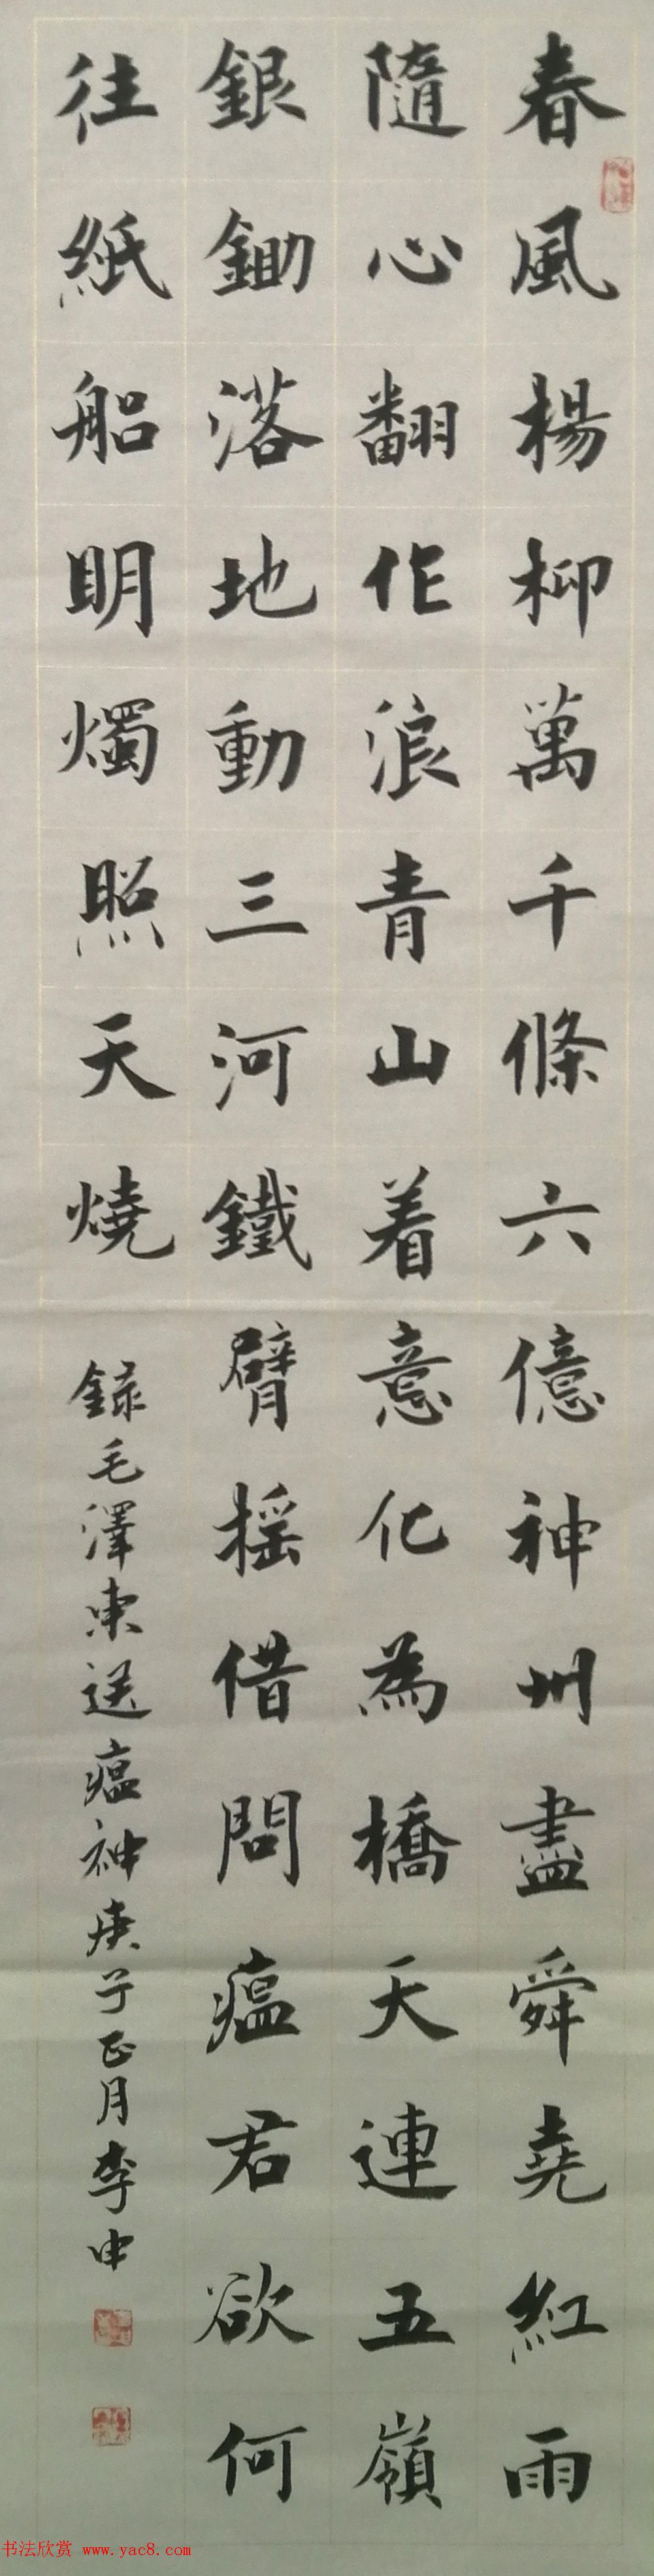 春風楊柳萬千條六億神州盡舜堯紅雨
隨心翻作浪青山着意化為橋天連五嶺
銀鋤落地動三河鐵臂搖借問瘟君欲何
往紙船明燭照天燒
錄毛澤東送瘟神庚子正月李申
书法欣赏 www.yac8.com